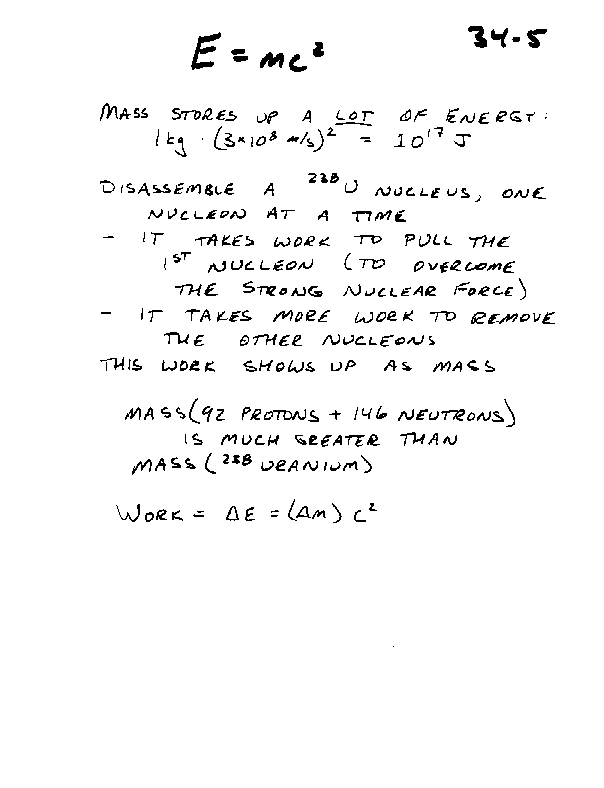 34-5
E = mc²
MASS STORES UP A LOT OF ENERGY:
1 kg · (3×10⁸ m/s)² = 10¹⁷ J
DISASSEMBLE A ²³⁸U NUCLEUS, ONE
NUCLEON AT A TIME
- IT TAKES WORK TO PULL THE
1ST NUCLEON (TO OVERCOME
THE STRONG NUCLEAR FORCE)
- IT TAKES MORE WORK TO REMOVE
THE OTHER NUCLEONS
THIS WORK SHOWS UP AS MASS
MASS(92 PROTONS + 146 NEUTRONS)
IS MUCH GREATER THAN
MASS(²³⁸URANIUM)
WORK = ΔE = (ΔM) C²